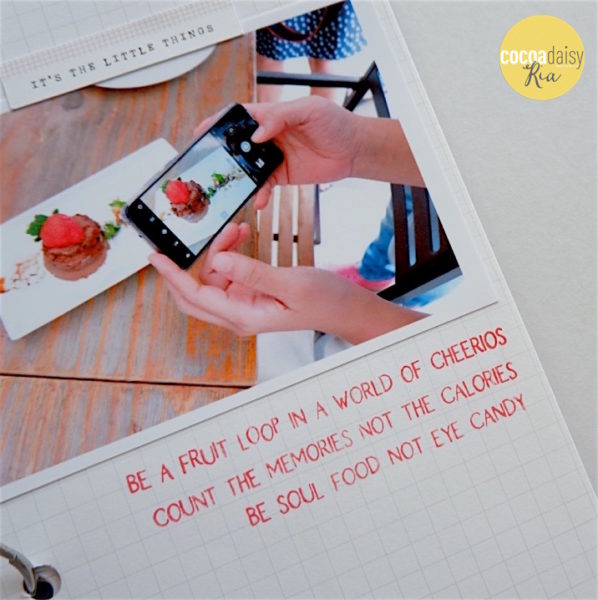 IT'S THE LITTLE THINGS
cocoadaisy
Ria
BE A FRUIT LOOP IN A WORLD OF CHEERIOS
COUNT THE MEMORIES NOT THE CALORIES
BE SOUL FOOD NOT EYE CANDY